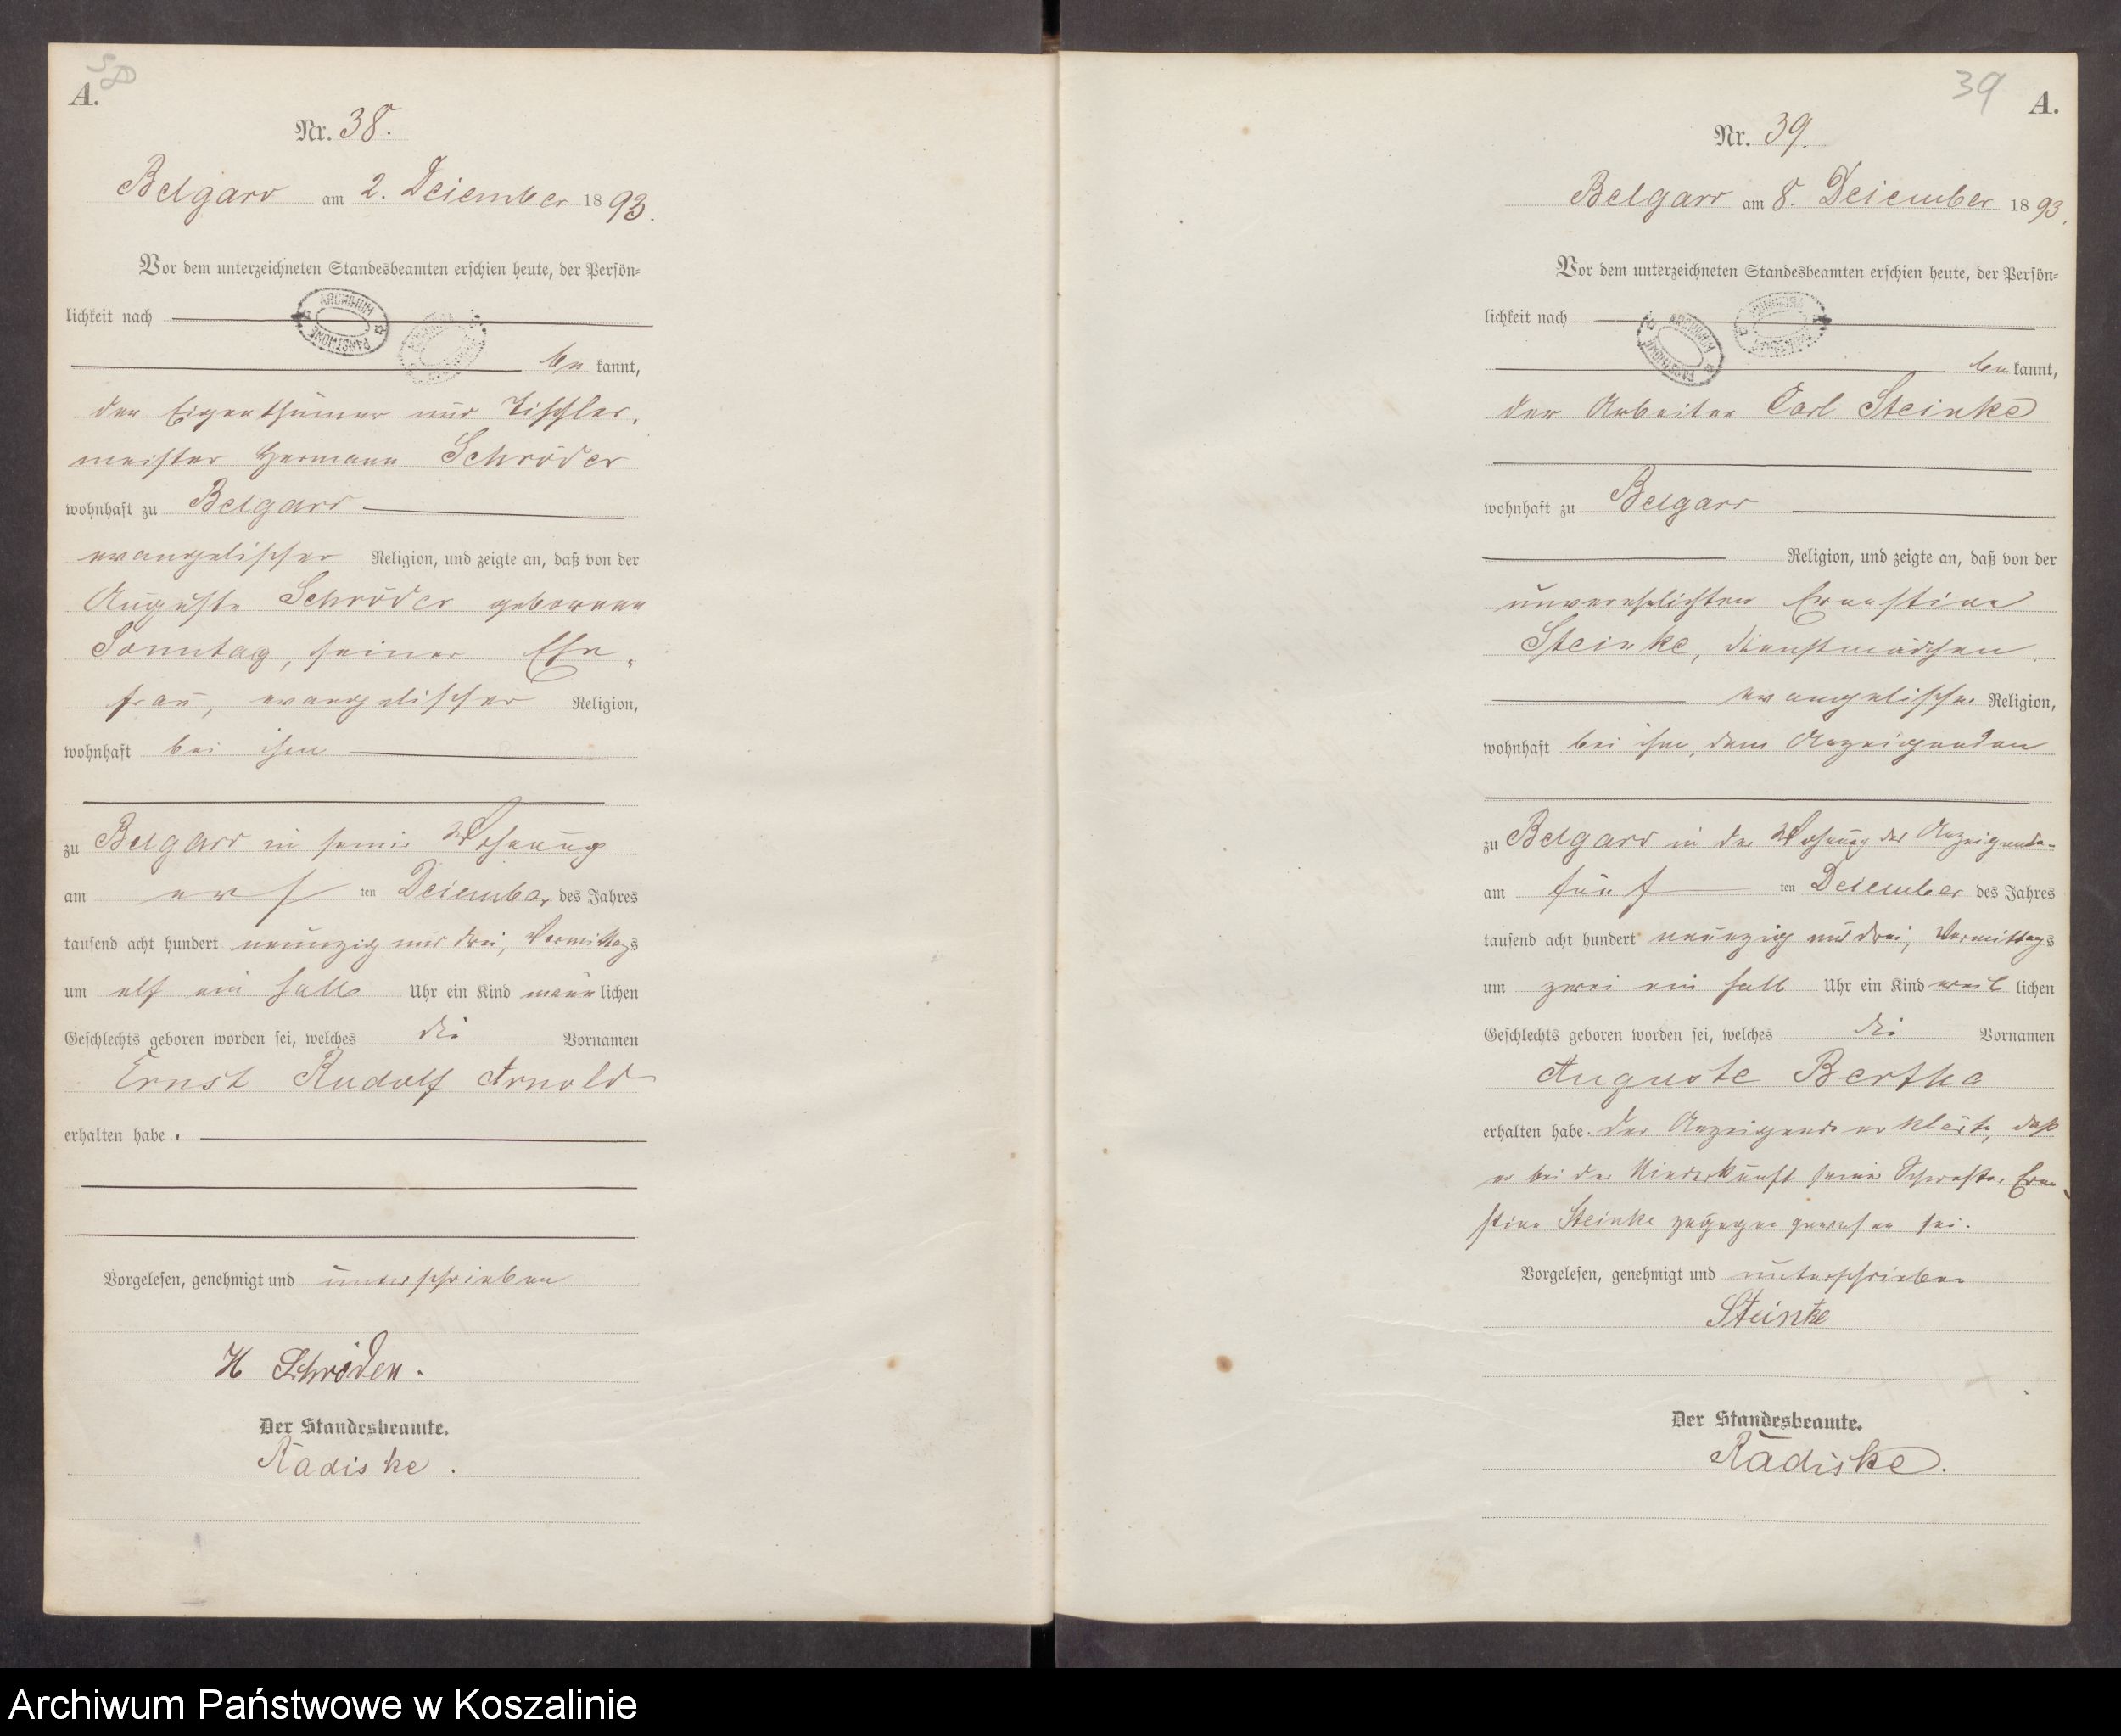 38
A.
Nr. 38.
Belgard am 2. Dezember 1893.
Vor dem unterzeichneten Standesbeamten erschien heute, der Persön=
lichkeit nach
ARCHIWUM PAŃSTWOWE
be kannt,
der Eigenthümer und Tischler,
meister Hermann Schröder
wohnhaft zu Belgard
evangelischer Religion, und zeigte an, daß von der
Auguste Schröder geborenen
Sonntag, seiner Ehe,
frau, evangelischer Religion,
wohnhaft bei ihm
zu Belgard in seiner Wohnung
am ers ten Dezember des Jahres
tausend acht hundert neunzig und drei, Vormittags
um elf ein halb Uhr ein Kind männlichen
Geschlechts geboren worden sei, welches die Vornamen
Ernst Rudolf Arnold
erhalten habe.
Vorgelesen, genehmigt und unterschrieben
H Schröder.
Der Standesbeamte.
Radiske.
39
A.
Nr. 39.
Belgard am 8. Dezember 1893.
Vor dem unterzeichneten Standesbeamten erschien heute, der Persön=
lichkeit nach
ARCHIWUM PAŃSTWOWE
be kannt,
der Arbeiter Carl Steinke
wohnhaft zu Belgard
Religion, und zeigte an, daß von der
unverehelichten Ernestine
Steinke, Dienstmädchen
evangelischer Religion,
wohnhaft bei ihm, dem Anzeigenden
zu Belgard in der Wohnung des Anzeigenden
am fünf ten Dezember des Jahres
tausend acht hundert neunzig und drei, Vormittags
um zwei ein halb Uhr ein Kind weib lichen
Geschlechts geboren worden sei, welches die Vornamen
Auguste Bertha
erhalten habe. Der Anzeigende erklärte, daß
er bei der Niederkunft seiner Schwester Erne
stine Steinke zugegen gewesen sei.
Vorgelesen, genehmigt und unterschrieben
Steinke
Der Standesbeamte.
Radiske.
Archiwum Państwowe w Koszalinie